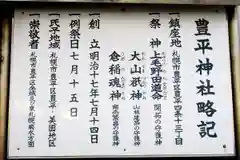 豊平神社略記
鎮座地 札幌市豊平区豊平四条十三丁目
祭神 上毛野田道命 開拓の守護神
大山祇神 山林産業の守護神
倉稲魂神 商売繁昌の守護神
一創立 明治十七年七月十四日
一例祭日 七月十五日
一氏子地域 札幌市豊平区豊平・美園地区
崇敬者